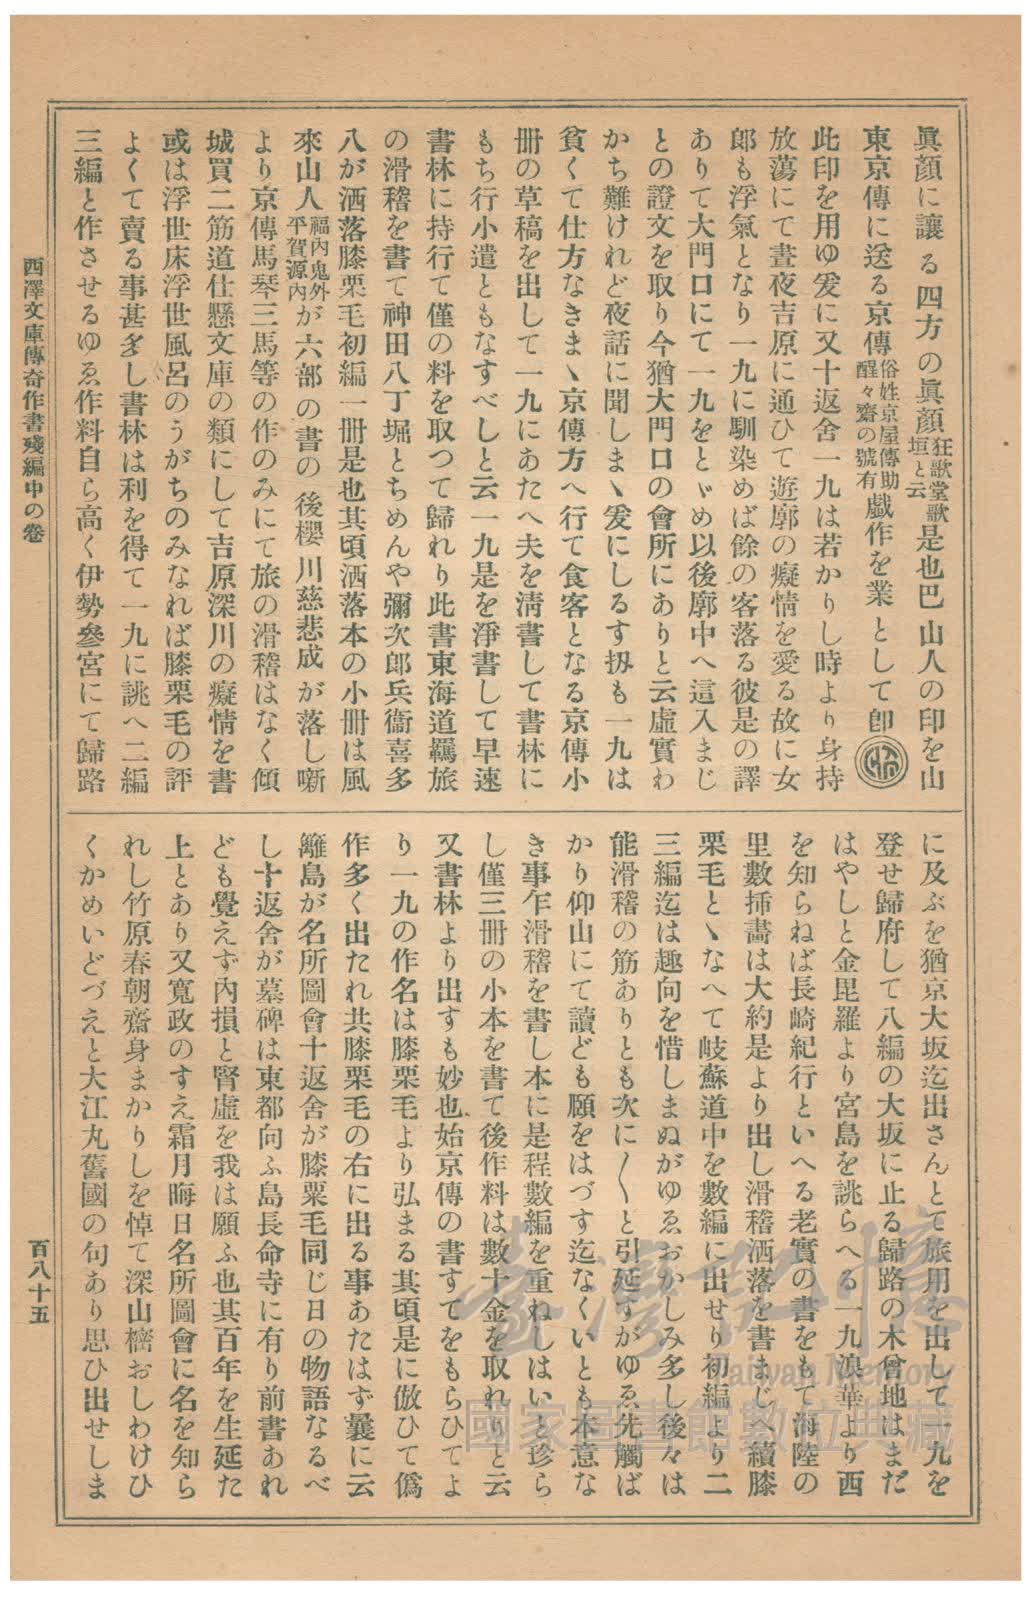 眞顏に讓る四方の眞顏狂歌堂歌垣と云是也巴山人の印を山
東京傳に送る京傳俗姓京屋傳助醒々齋の號有戲作を業として卽
此印を用ゆ爰に又十返舍一九は若かりし時より身持
放蕩にて晝夜吉原に通ひて遊廓の癡情を愛る故に女
郎も浮氣となり一九に馴染めば餘の客落る彼是の譯
ありて大門口にて一九をとゞめ以後廓中へ這入まじ
との證文を取り今猶大門口の會所にありと云虛實わ
かち難けれど夜話に聞しまゝ爰にしるす扨も一九は
貧くて仕方なきまゝ京傳方へ行て食客となる京傳小
册の草稿を出して一九にあたへ夫を淸書して書林に
もち行小遣ともなすべしと云一九是を淨書して早速
書林に持行て僅の料を取つて歸れり此書東海道羇旅
の滑稽を書て神田八丁堀とちめんや彌次郎兵衞喜多
八が洒落膝栗毛初編一册是也其頃洒落本の小册は風
來山人福內鬼外平賀源內が六部の書の後櫻川慈悲成が落し噺
より京傳馬琴三馬等の作のみにて旅の滑稽はなく傾
城買二筋道仕懸文庫の類にして吉原深川の癡情を書
或は浮世床浮世風呂のうがちのみなれば膝栗毛の評
よくて賣る事甚多し書林は利を得て一九に誂へ二編
三編と作させるゆゑ作料自ら高く伊勢參宮にて歸路
に及ぶを猶京大坂迄出さんとて旅用を出して一九を
登せ歸府して八編の大坂に止る歸路の木曾地はまだ
はやしと金毘羅より宮島を誂らへる一九浪華より西
を知らねば長崎紀行といへる老實の書をもて海陸の
里數揷畫は大約是より出し滑稽洒落を書まじへ續膝
栗毛とゝなへて岐蘇道中を數編に出せり初編より二
三編迄は趣向を惜しまぬがゆゑおかしみ多し後々は
能滑稽の筋ありとも次に〳〵と引延すがゆゑ先觸ば
かり仰山にて讀ども願をはづす迄なくいとも本意な
き事乍滑稽を書し本に是程數編を重ねしはいと珍ら
し僅三册の小本を書て後作料は數十金を取れりと云
又書林より出すも妙也始京傳の書すてをもらひてよ
り一九の作名は膝栗毛より弘まる其頃是に倣ひて僞
作多く出たれ共膝栗毛の右に出る事あたはず曩に云
籬島が名所圖會十返舍が膝栗毛同じ日の物語なるべ
し十返舍が墓碑は東都向ふ島長命寺に有り前書あれ
ども覺えず內損と腎虛を我は願ふ也其百年を生延た
上とあり又寬政のすえ霜月晦日名所圖會に名を知ら
れし竹原春朝齋身まかりしを悼て深山樒おしわけひ
くかめいどづえと大江丸舊國の句あり思ひ出せしま
西澤文庫傳奇作書殘編中の卷
百八十五
臺灣記憶
Taiwan Memory
國家圖書館數位典藏